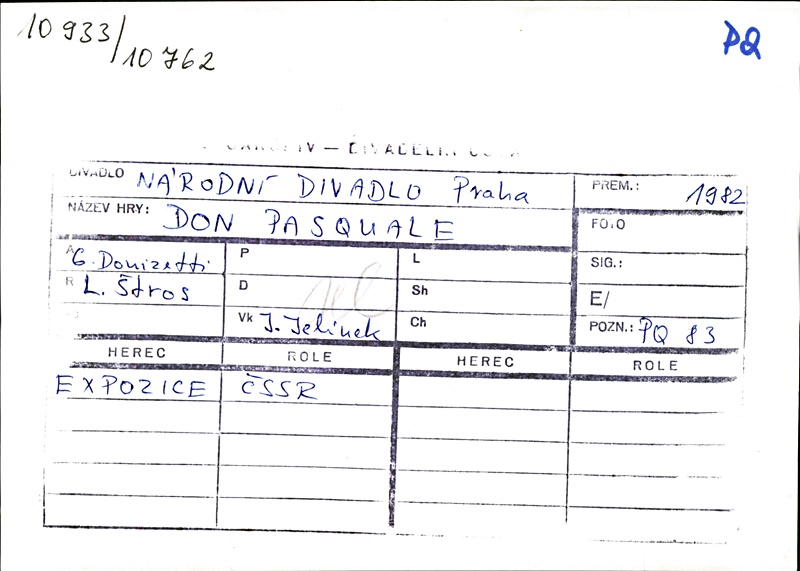 10 933/10 762
PQ
DIVADLO NÁRODNÍ DIVADLO Praha
PREM.: 1982
NÁZEV HRY: DON PASQUALE
FOTO
A G. Donizetti
P
L
SIG.:
R L. Štros
D
Sh
E/
Vk J. Jelínek
Ch
POZN.: PQ 83
HEREC ROLE HEREC ROLE
EXPOZICE ČSSR